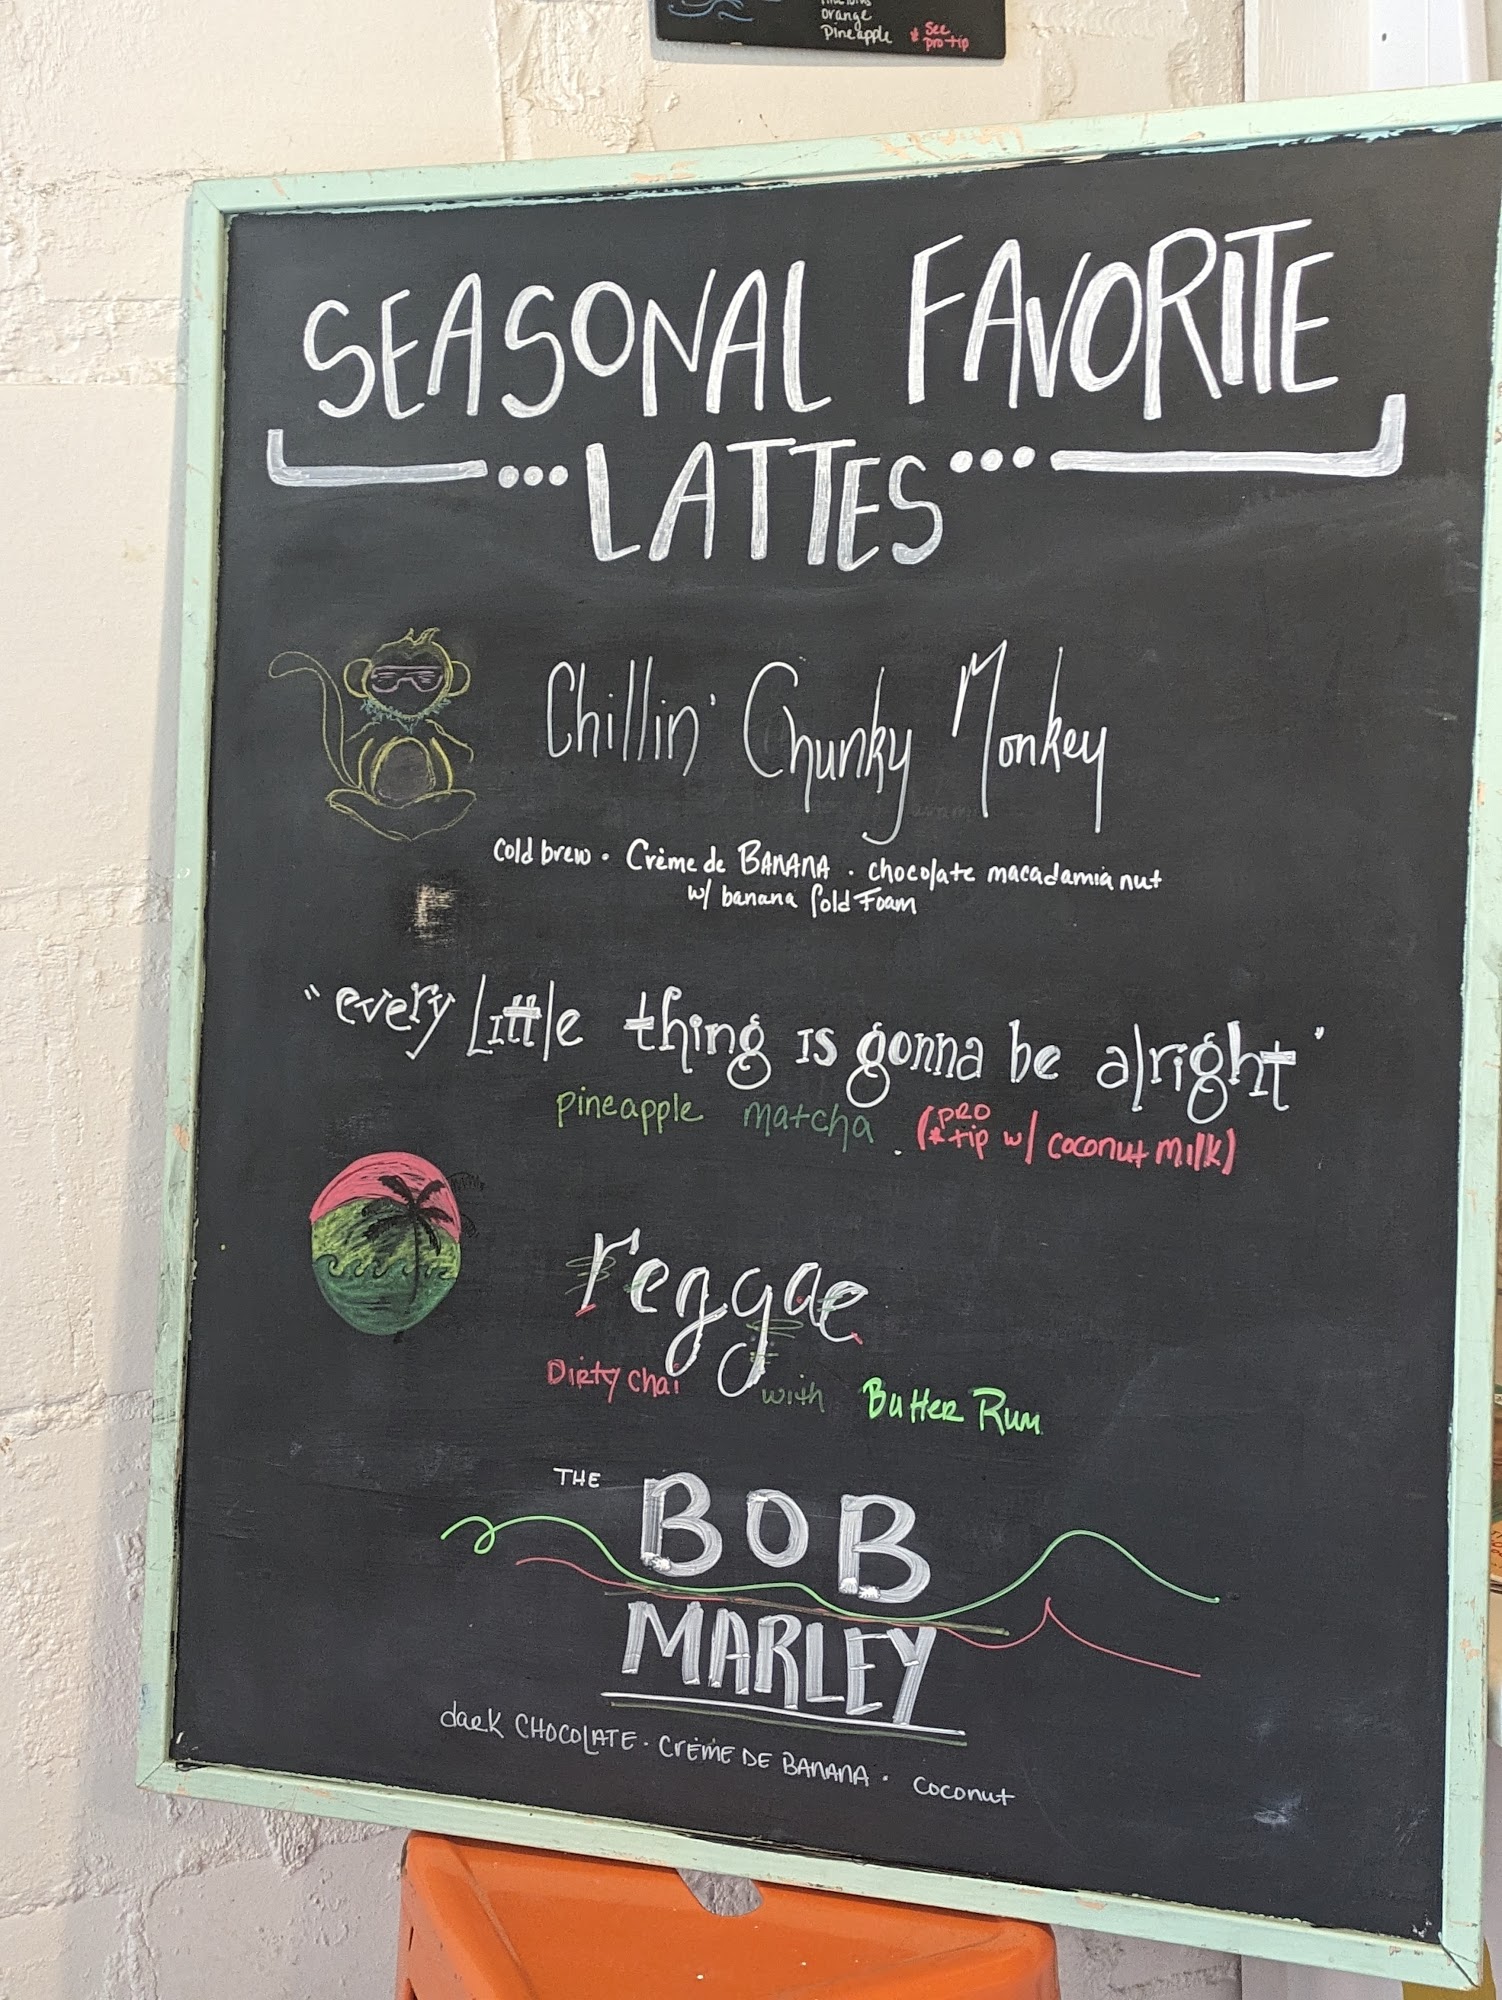 orange
pineapple
* See
pro tip
SEASONAL FAVORITE
LATTES
Chillin' Chunky Monkey
cold brew · Crème de BANANA · chocolate macadamia nut
w/ banana Cold Foam
"every little thing is gonna be alright"
pineapple matcha (* PRO tip w/ coconut milk)
reggae
Dirty chai with Butter Rum
THE BOB
MARLEY
dark CHOCOLATE · CRÈME DE BANANA · coconut